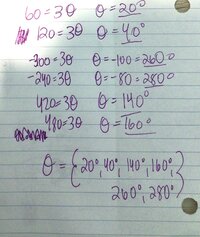 60=3θ θ=20°
120=3θ θ=40°
-300=3θ θ=-100=260°
-240=3θ θ=-80=280°
420=3θ θ=140°
480=3θ θ=160°
θ={20°,40°,140°,160°,
260°,280°}